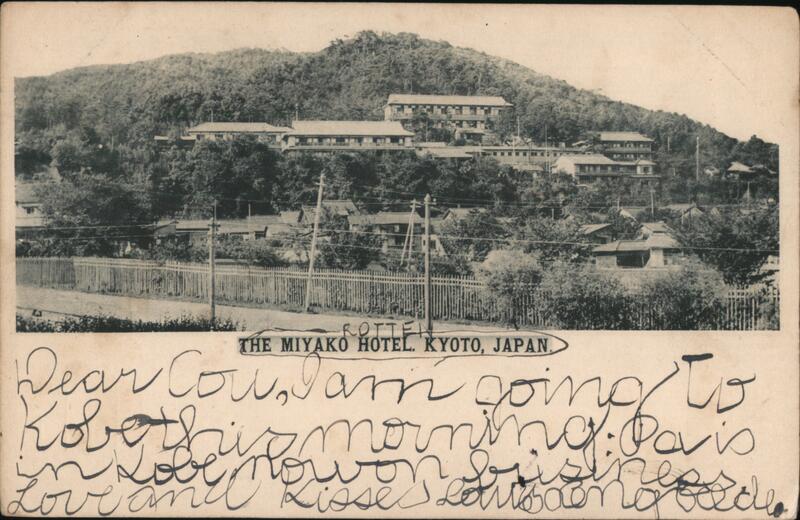 ROTTEN
THE MIYAKO HOTEL. KYOTO, JAPAN.
Dear Cou, I am going to
Kobe this morning. Pa is
in Kobe now on business.
Love and Kisses